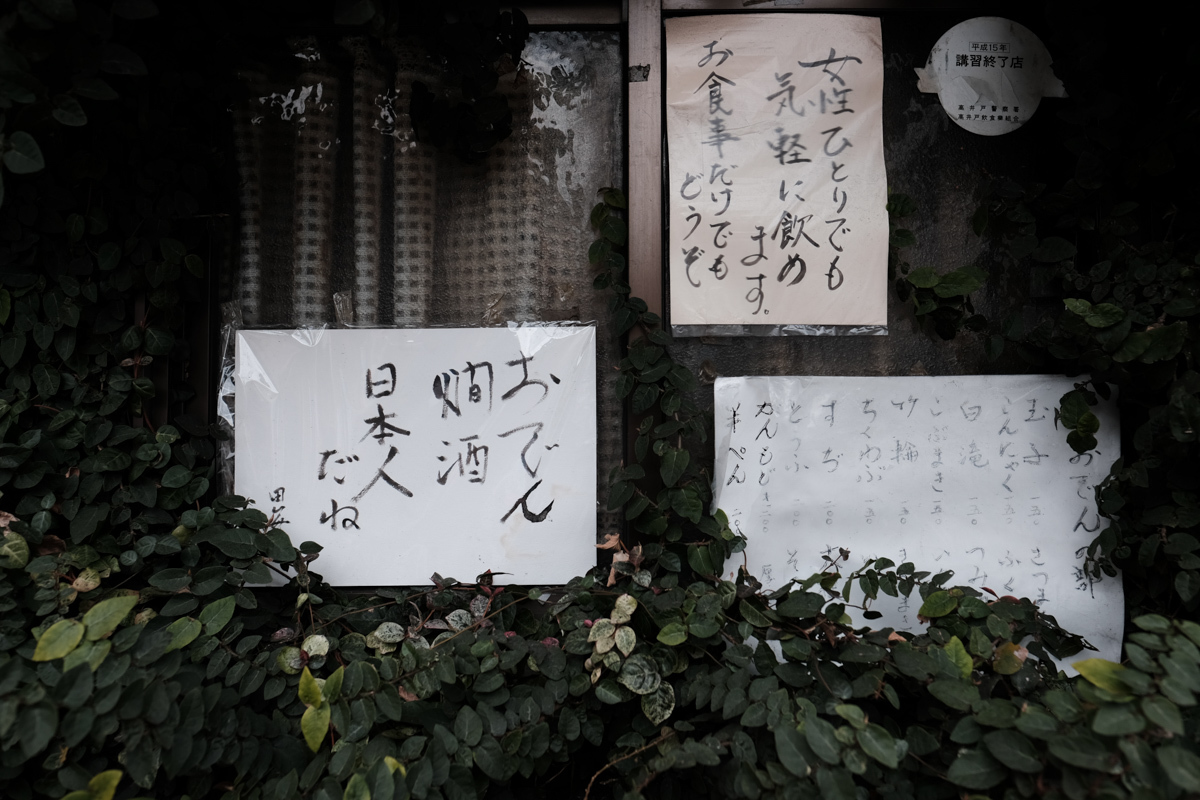 女性ひとりでも
気軽に飲め
ます。
お食事だけでも
どうぞ
平成15年
講習終了店
高井戸警察署
おでん
燗酒
日本人
だね
おでん
玉子 一五〇 さつま
こんにゃく 一五〇 ふく
白滝 一五〇 つみ
こぶまき 一五〇
竹輪 一五〇
ちくわぶ 一五〇
すぢ
とうふ
がんもどき 二〇〇
半ぺん